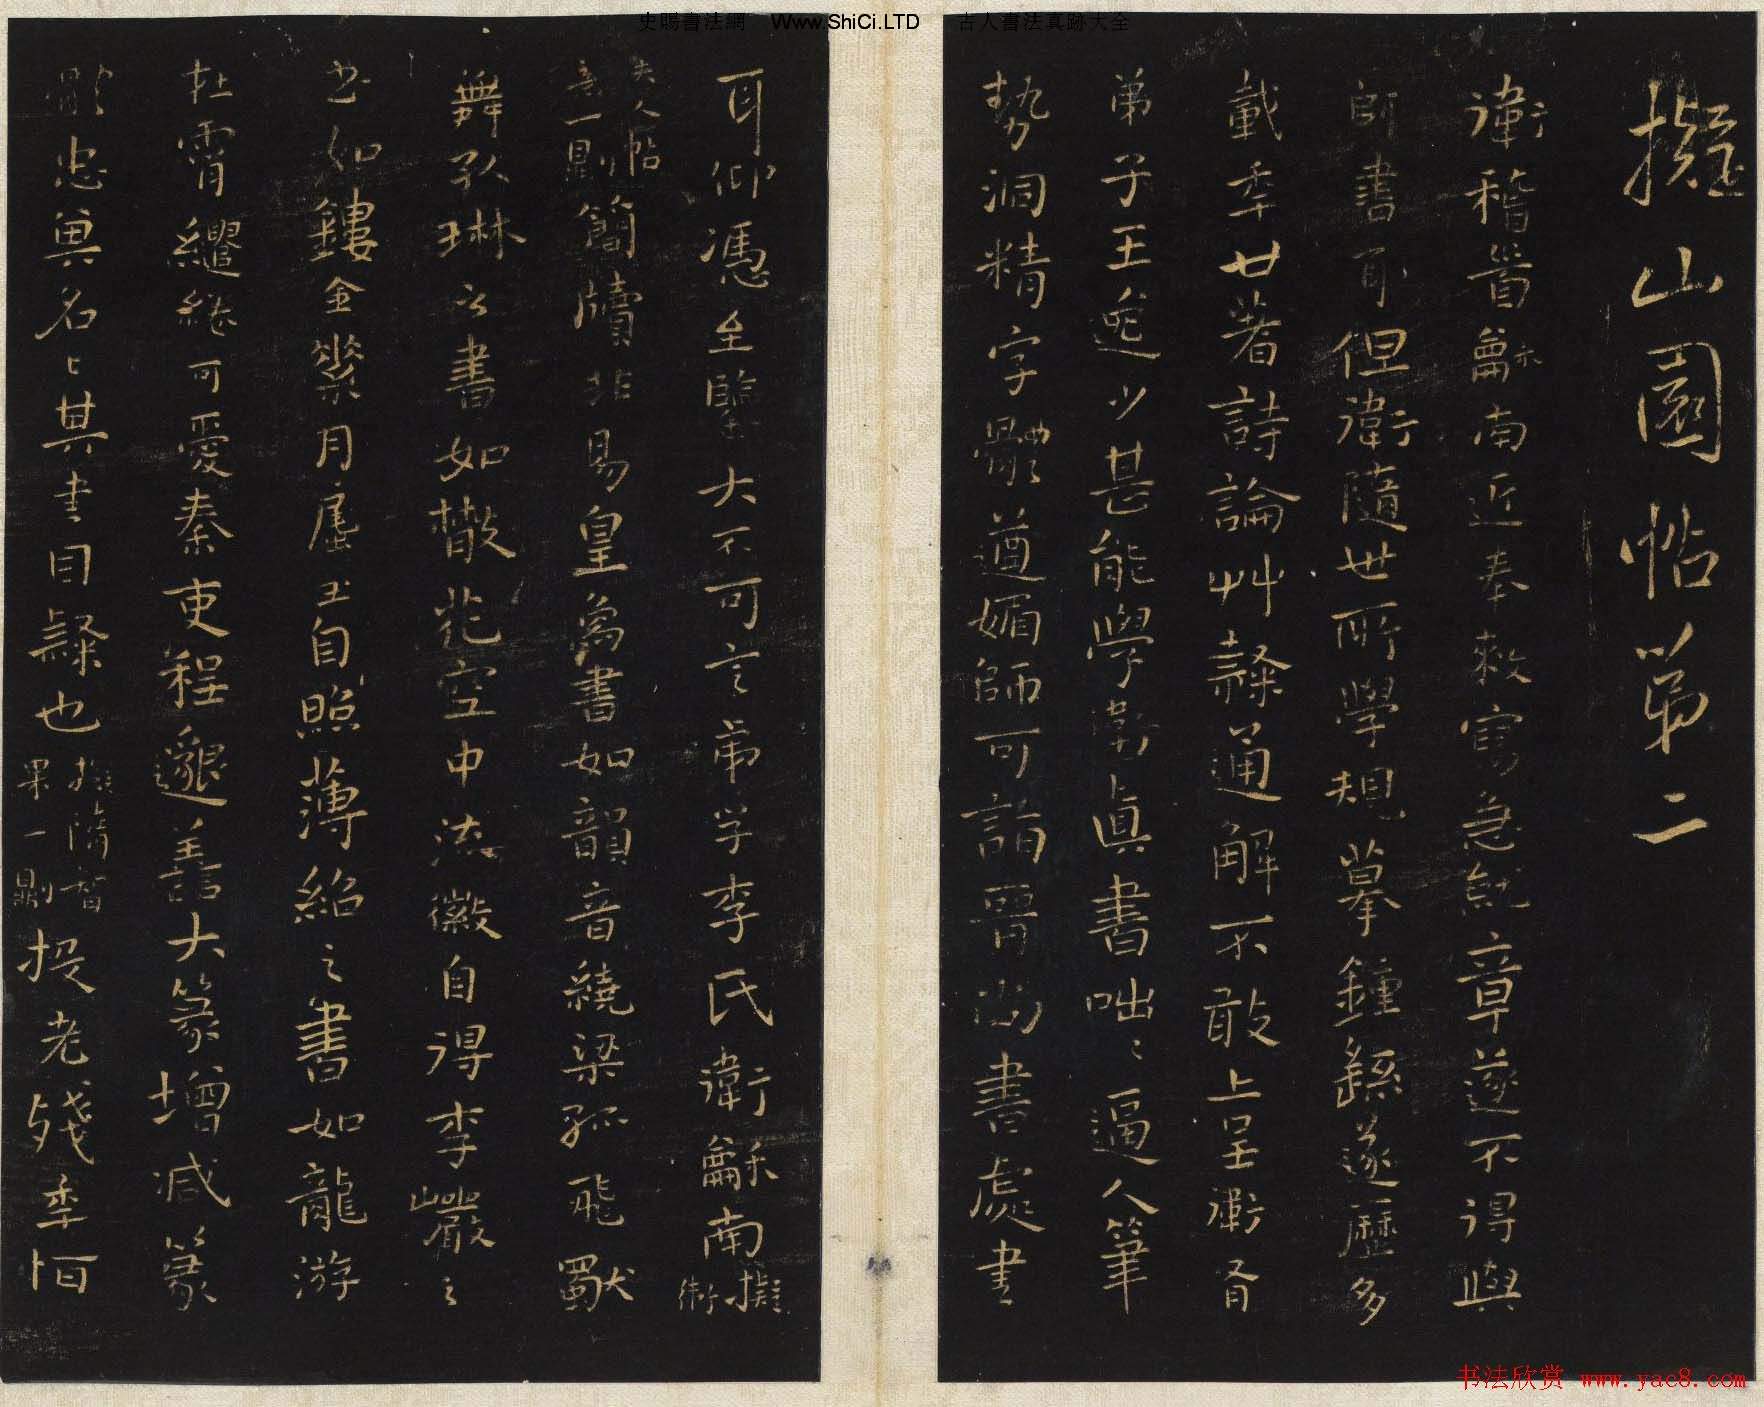 史賜書法網 Www.ShiCi.LTD 古人書法真跡大全
擬山園帖第二
衛稽首龢南近奉敕寫急就章遂不得與
師書耳但衛隨世所學規摹鍾繇遂歷多
載年廿著詩論艸隸通解不敢上呈衛有
弟子王逸少甚能學衛真書咄咄逼人筆
勢洞精字體遒媚師可詣晉尚書處書
耳仰憑至鑒大不可言弟子李氏衛龢南擬衛
夫人帖
一則簡牘非易皇象書如韻音繞梁孤飛獸
舞孔琳之書如散花空中流徽自得李巖之
書如鏤金素月屈玉自照薄紹之書如龍游
在霄繾綣可愛秦吏程邈善大篆增減篆
體忠與名其書曰隸也擬隋智
果一則投老殘年恒
书法欣赏 www.yac8.com